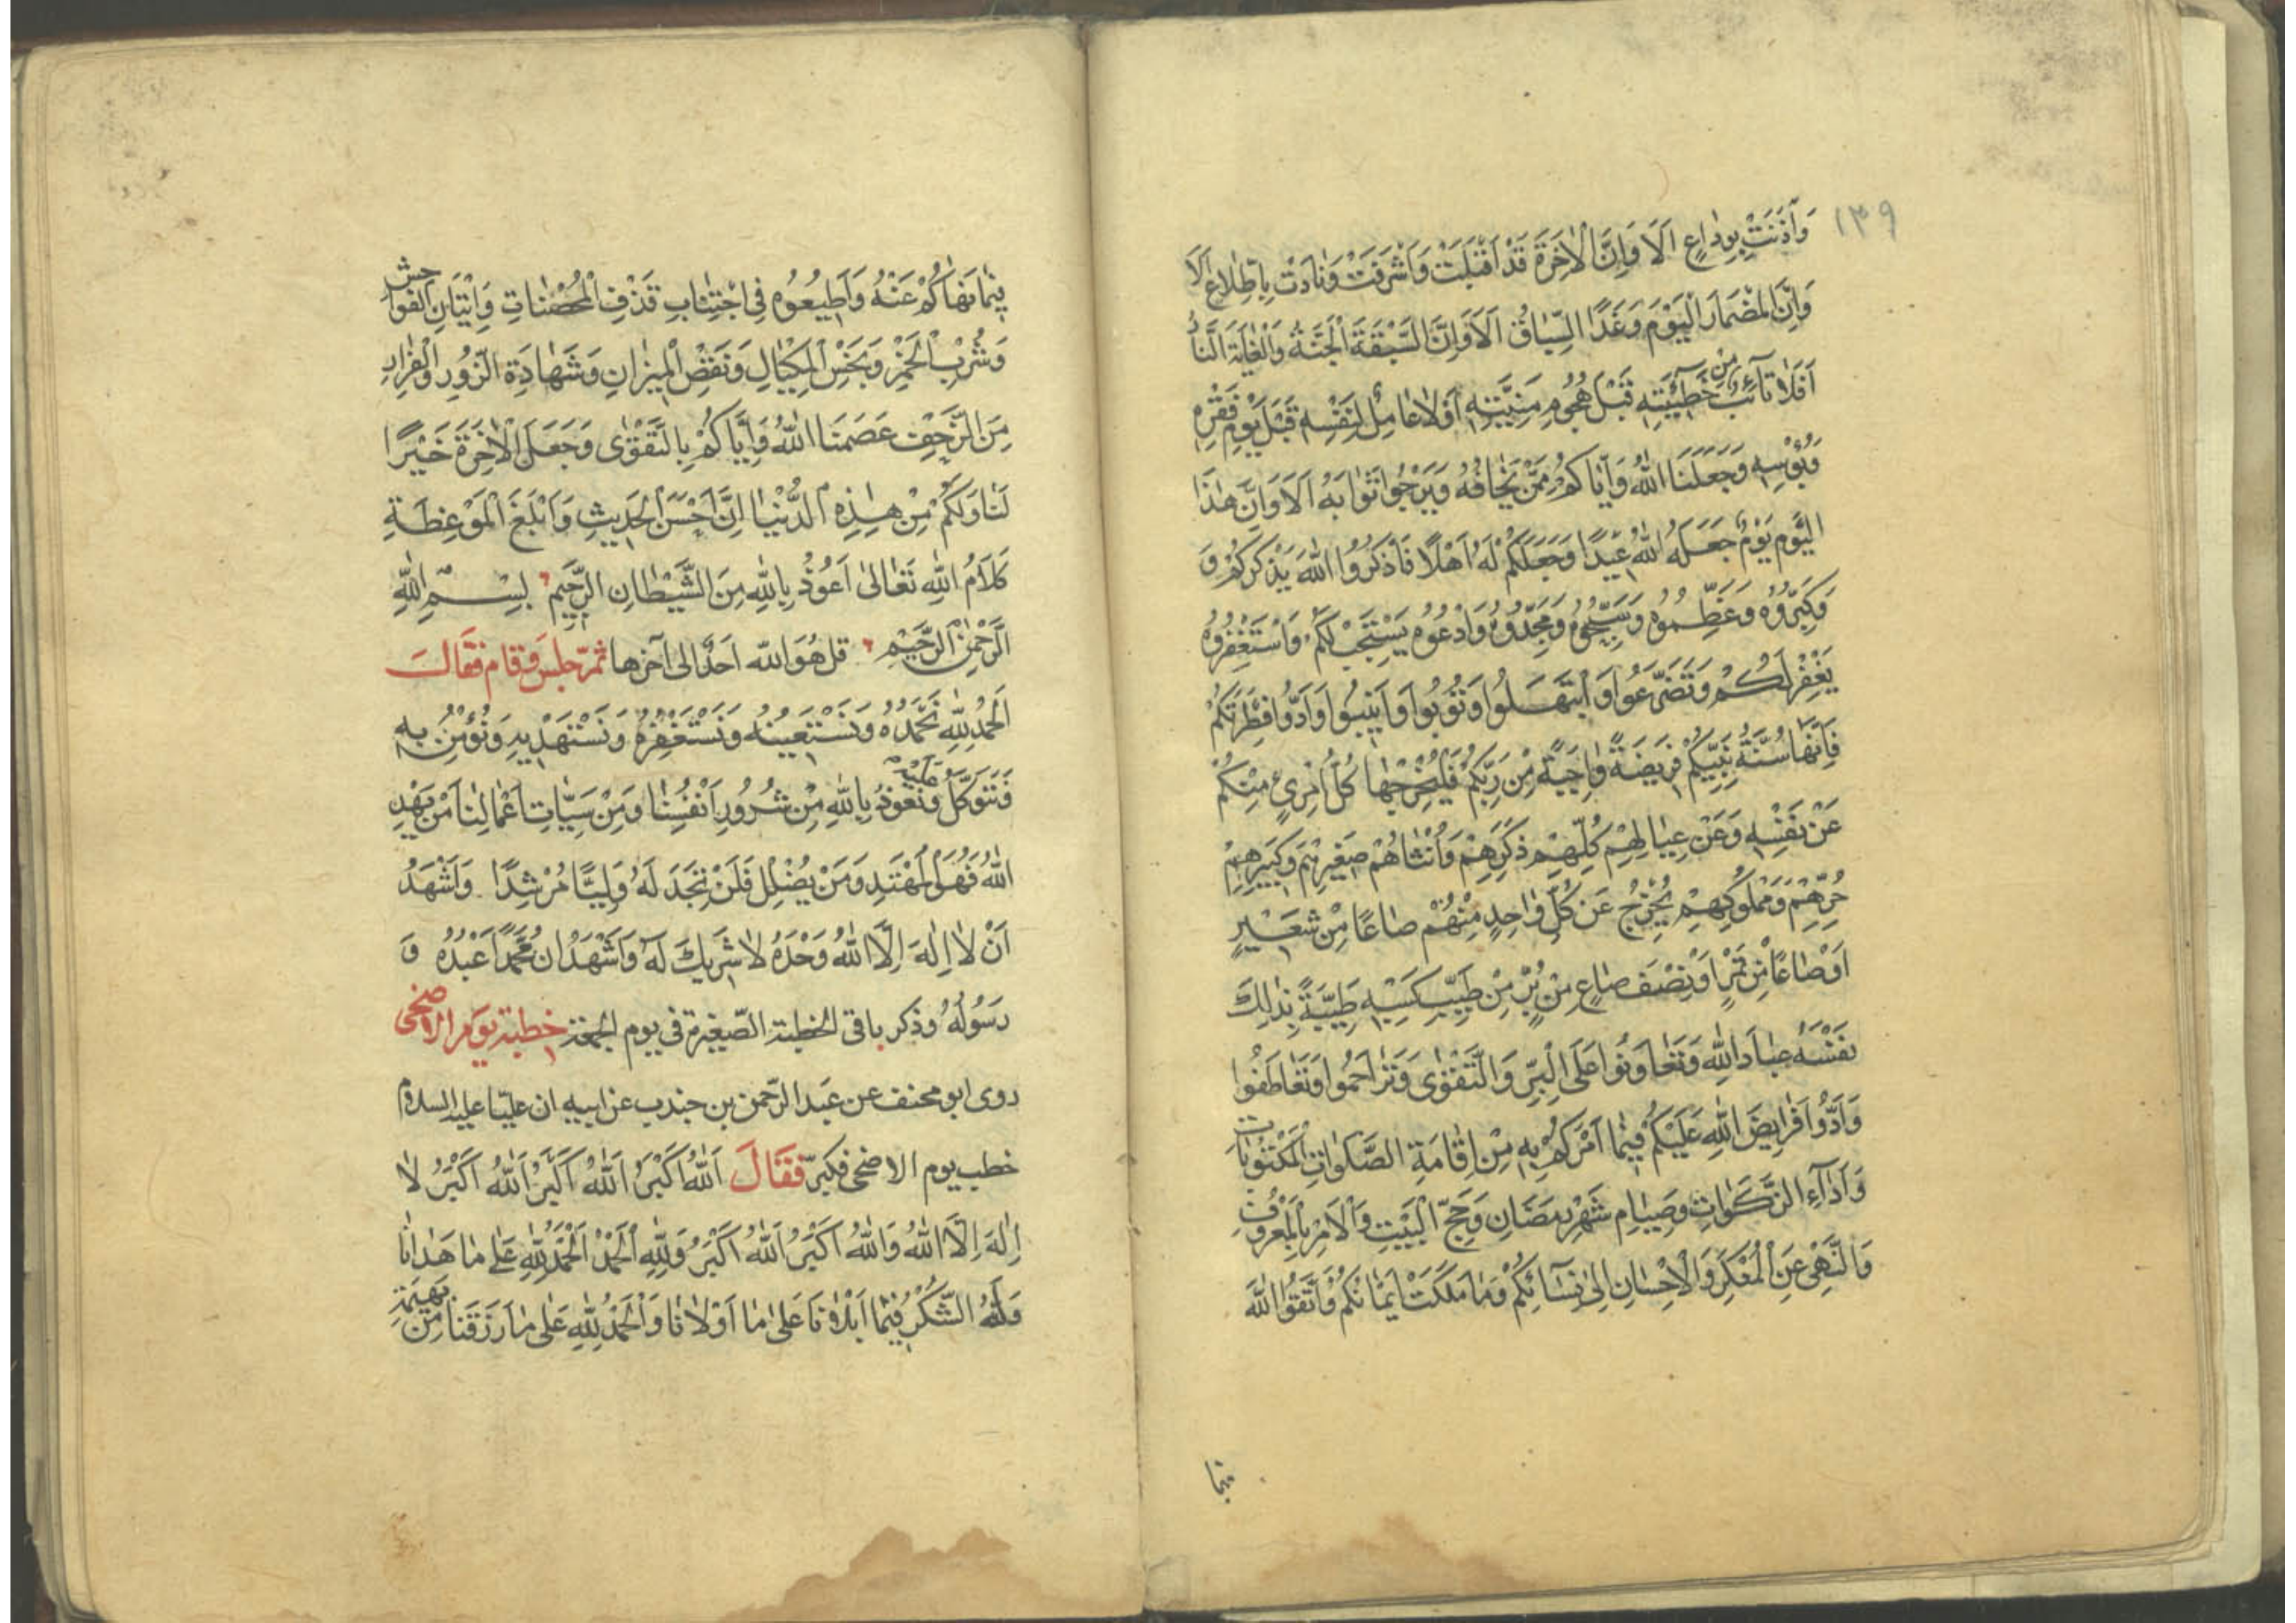 ١٣٩
وَآذَنَتْ بِوِدَاعٍ اَلَا وَاِنَّ الْاٰخِرَةَ قَدْ اَقْبَلَتْ وَاَشْرَفَتْ وَنَادَتْ بِاطِّلَاعٍ اَلَا
وَاِنَّ الْمِضْمَارَ الْيَوْمَ وَغَدًا السِّبَاقُ اَلَا وَاِنَّ السَّبَقَةَ الْجَنَّةُ وَالْغَايَةَ النَّارُ
اَفَلَا تَآئِبٌ مِنْ خَطِيْئَتِهِ قَبْلَ هُجُومِ مَنِيَّتِهِ اَفَلَا عَامِلٌ لِنَفْسِهِ قَبْلَ يَوْمِ فَقْرِهِ
وَبُؤْسِهِ وَجَعَلَنَا اللهُ وَاِيَّاكُمْ مِمَّنْ يَخَافُهُ وَيَرْجُوا ثَوَابَهُ اَلَا وَاِنَّ هٰذَا
الْيَوْمَ يَوْمٌ جَعَلَهُ اللهُ عِيْدًا وَجَعَلَكُمْ لَهُ اَهْلًا فَاذْكُرُوا اللهَ يَذْكُرْكُمْ وَ
وَكَبِّرُوْهُ وَعَظِّمُوهُ وَسَبِّحُوهُ وَمَجِّدُوهُ وَادْعُوهُ يَسْتَجِبْ لَكُمْ وَاسْتَغْفِرُوهُ
يَغْفِرْ لَكُمْ وَتَضَرَّعُوا وَابْتَهِلُوا وَتُوبُوا وَاَنِيبُوا وَاَدُّوا فِطْرَتَكُمْ
فَاِنَّهَا سُنَّةُ نَبِيِّكُمْ فَرِيضَةً وَاجِبَةً مِنْ رَبِّكُمْ فَلْيُخْرِجْهَا كُلُّ امْرِئٍ مِنْكُمْ
عَنْ نَفْسِهِ وَعَنْ عِيَالِهِمْ كُلِّهِمْ ذَكَرِهِمْ وَاُنْثَاهُمْ صَغِيرِهِمْ وَكَبِيرِهِمْ
حُرِّهِمْ وَمَمْلُوكِهِمْ يُخْرِجُ عَنْ كُلِّ وَاحِدٍ مِنْهُمْ صَاعًا مِنْ شَعِيْرٍ
اَوْ صَاعًا مِنْ تَمْرٍ اَوْ نِصْفَ صَاعٍ مِنْ بُرٍّ مِنْ طَيِّبِ كَسْبِهِ طَيِّبَةً بِذٰلِكَ
نَفْسُهُ عِبَادَ اللهِ وَتَعَاوَنُوا عَلَى الْبِرِّ وَالتَّقْوٰى وَتَرَاحَمُوا وَتَعَاطَفُوا
وَاَدُّوا فَرَايِضَ اللهِ عَلَيْكُمْ فِيمَا اَمَرَكُمْ بِهِ مِنْ اِقَامَةِ الصَّلَوَاتِ الْمَكْتُوبَاتِ
وَاَدَآءِ الزَّكَوَاتِ وَصِيَامِ شَهْرِ رَمَضَانَ وَحَجِّ الْبَيْتِ وَالْاَمْرِ بِالْمَعْرُوفِ
وَالنَّهْيِ عَنِ الْمُنْكَرِ وَالْاِحْسَانِ اِلٰى نِسَآئِكُمْ وَمَا مَلَكَتْ اَيْمَانُكُمْ وَاتَّقُوا اللهَ
فيما
فِيْمَا نَهَاكُمْ عَنْهُ وَاَطِيعُوهُ فِى اجْتِنَابِ قَذْفِ الْمُحْصَنَاتِ وَاِتْيَانِ الْفَوَاحِشِ
وَشُرْبِ الْخَمْرِ وَبَخْسِ الْمِكْيَالِ وَنَقْصِ الْمِيزَانِ وَشَهَادَةِ الزُّورِ وَالْفِرَارِ
مِنَ الزَّحْفِ عَصَمَنَا اللهُ وَاِيَّاكُمْ بِالتَّقْوٰى وَجَعَلَ الْاٰخِرَةَ خَيْرًا
لَنَا وَلَكُمْ مِنْ هٰذِهِ الدُّنْيَا اِنَّ اَحْسَنَ الْحَدِيثِ وَاَبْلَغَ الْمَوْعِظَةِ
كَلَامُ اللهِ تَعَالٰى اَعُوْذُ بِاللهِ مِنَ الشَّيْطَانِ الرَّجِيمِ بِسْمِ اللهِ
الرَّحْمٰنِ الرَّحِيْمِ قل هُوَ الله اَحَدٌ الى آخرها ثمّ جلس و قام فقالَ
اَلْحَمْدُ لِلهِ نَحْمَدُهُ وَنَسْتَعِيْنُهُ وَنَسْتَغْفِرُهُ وَنَسْتَهْدِيهِ وَنُؤْمِنُ بِهِ
وَنَتَوَكَّلُ عَلَيْهِ وَنَعُوذُ بِاللهِ مِنْ شُرُورِ اَنْفُسِنَا وَمِنْ سَيِّئَاتِ اَعْمَالِنَا مَنْ يَهْدِ
اللهُ فَهُوَ الْمُهْتَدِ وَمَنْ يُضْلِلْ فَلَنْ تَجِدَ لَهُ وَلِيًّا مُرْشِدًا وَاَشْهَدُ
اَنْ لَا اِلٰهَ اِلَّا اللهُ وَحْدَهُ لَا شَرِيكَ لَهُ وَاَشْهَدُ اَنَّ مُحَمَّدًا عَبْدُهُ وَ
رَسُولُهُ وذكر باقى الخطبة الصّغيرة فى يوم الجمعة خطبة يوم الاضحى
روى ابو مخنف عن عَبد الرّحمن بن جندب عن ابيه ان عليّا عليه السلام
خطب يوم الاضحى فكبّر فقَالَ اَللهُ اَكْبَرُ اَللهُ اَكْبَرُ اَللهُ اَكْبَرُ لَا
اِلٰهَ اِلَّا اللهُ وَاللهُ اَكْبَرُ اَللهُ اَكْبَرُ وَلِلهِ الْحَمْدُ اَلْحَمْدُ لِلهِ عَلٰى مَا هَدَانَا
وَلَهُ الشُّكْرُ فِيْمَا اَبْلَانَا عَلٰى مَا اَوْلَانَا وَالْحَمْدُ لِلهِ عَلٰى مَا رَزَقَنَا مِنْ بَهِيْمَةِ